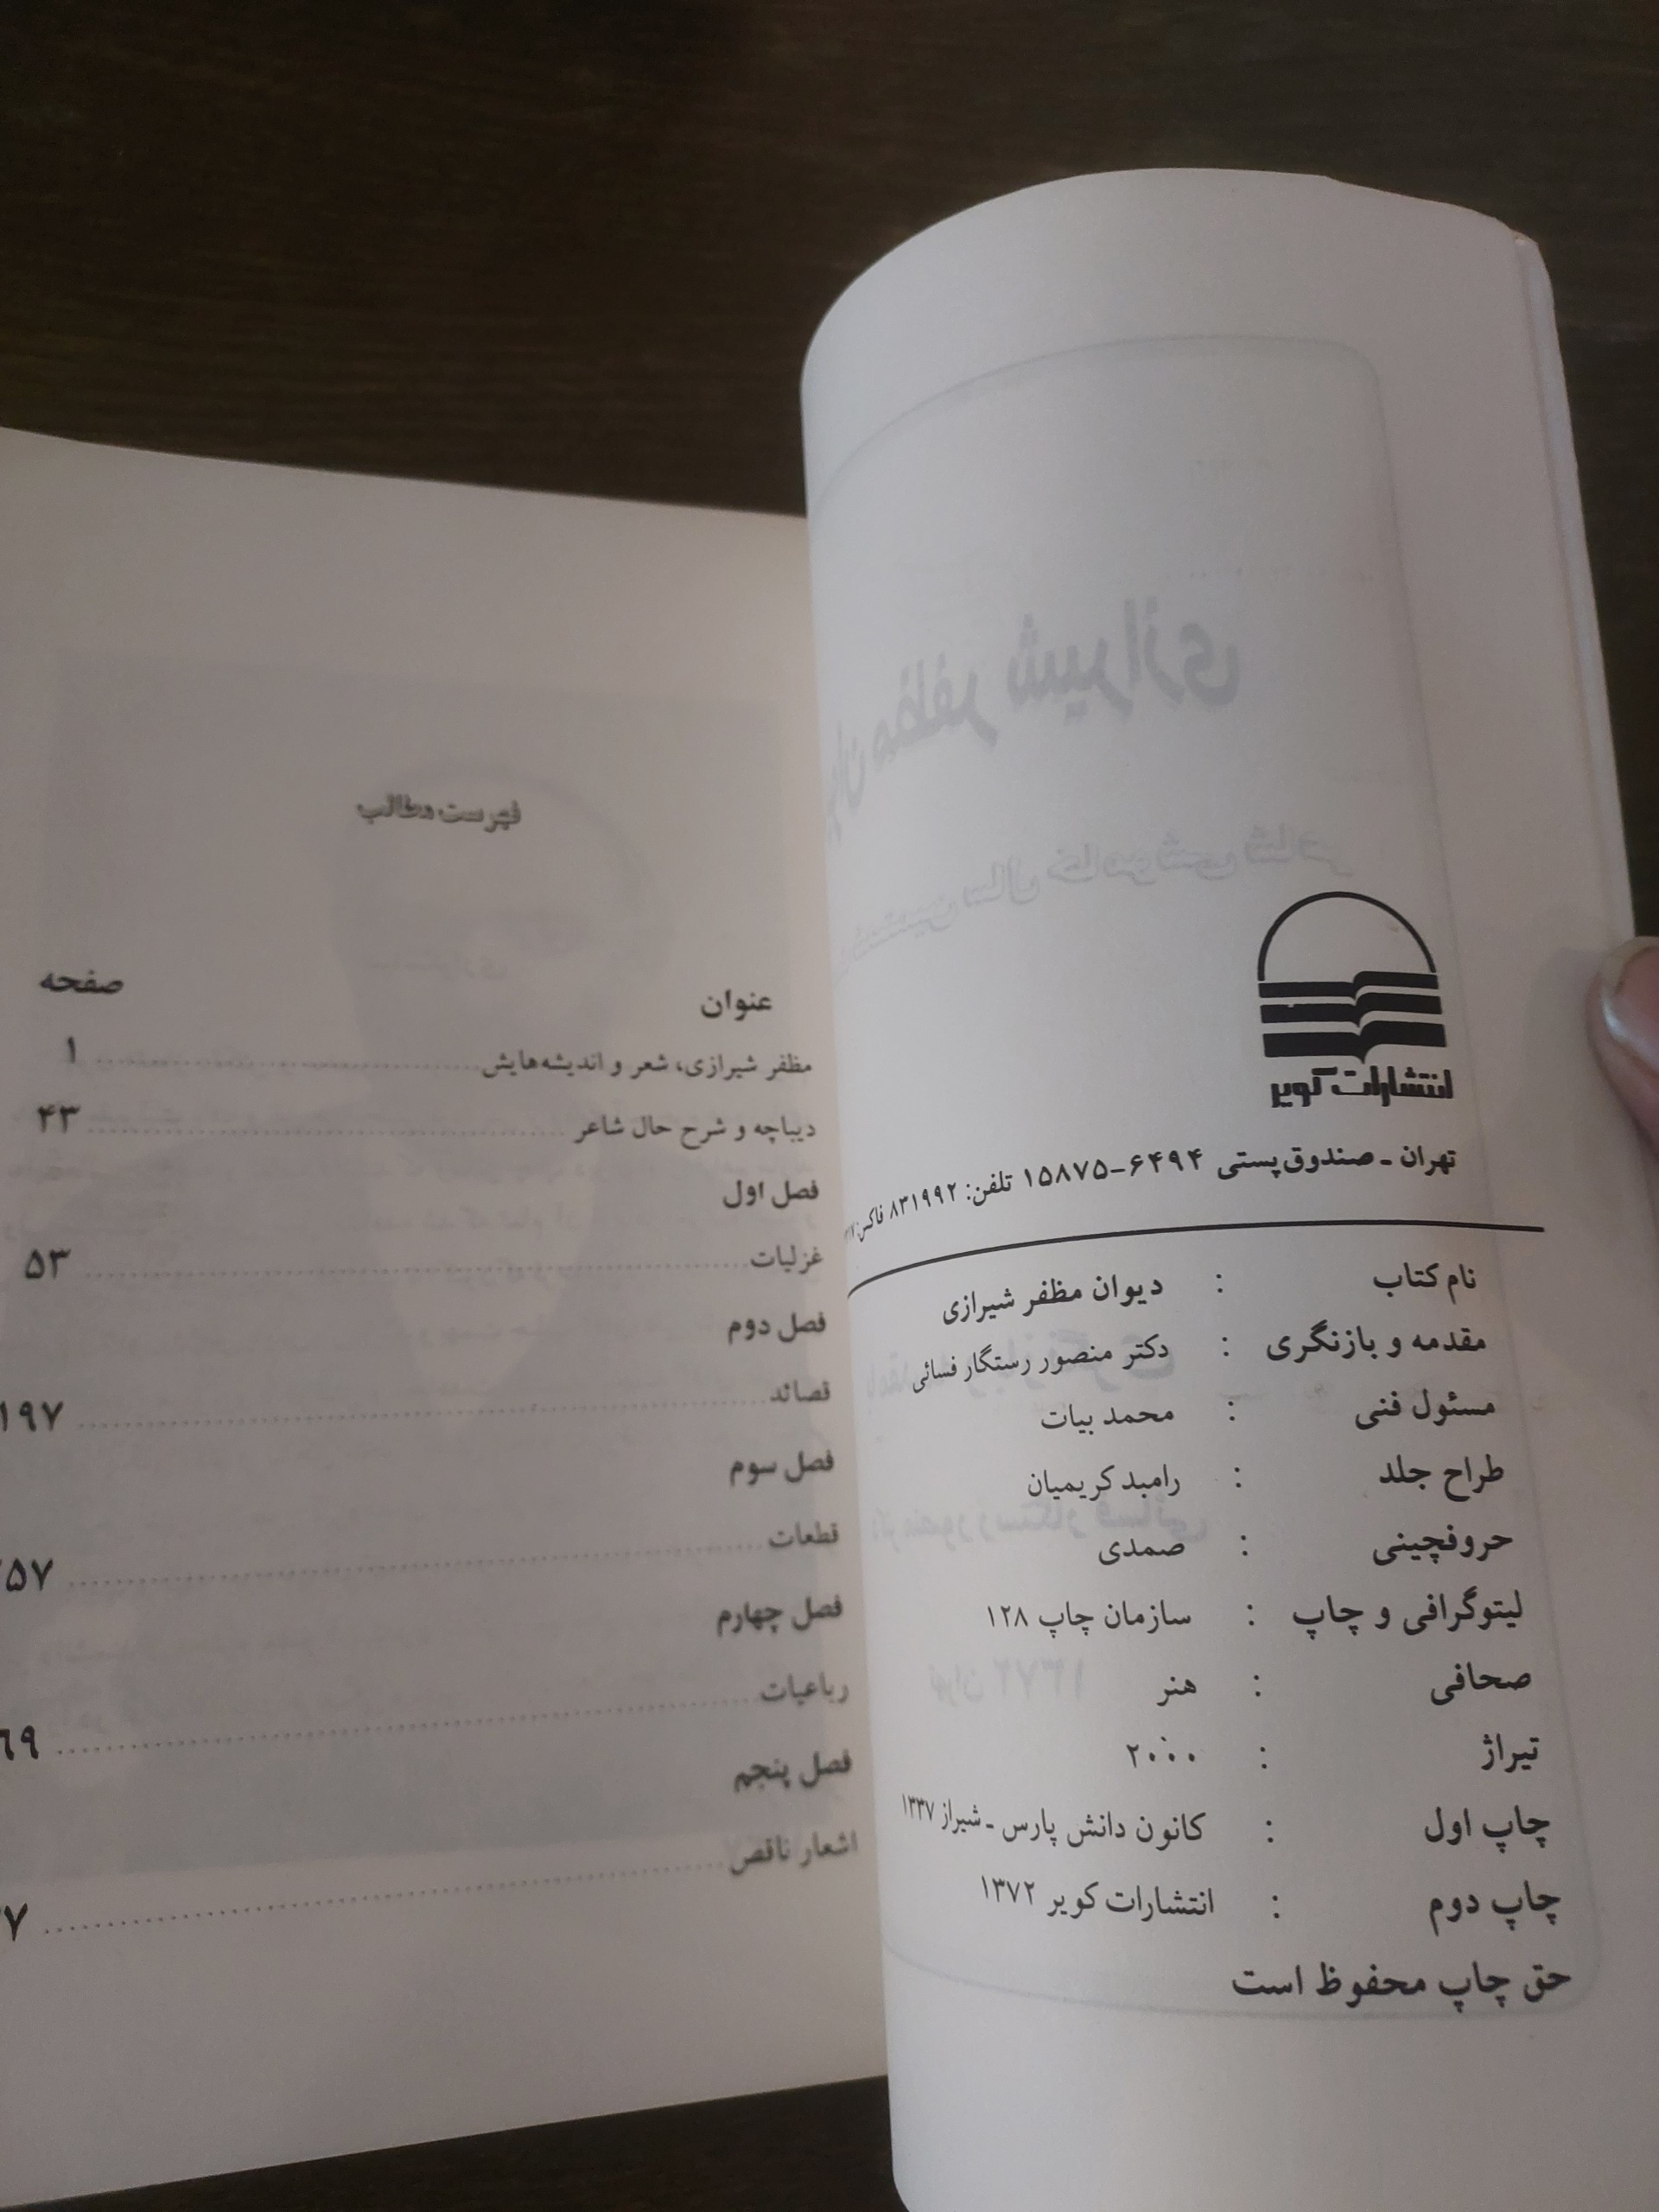 انتشارات کویر
تهران ـ صندوق پستی ۶۴۹۴-۱۵۸۷۵ تلفن: ۸۳۱۹۹۲ فاکس:
نام کتاب : دیوان مظفر شیرازی
مقدمه و بازنگری : دکتر منصور رستگار فسائی
مسئول فنی : محمد بیات
طراح جلد : رامبد کریمیان
حروفچینی : صمدی
لیتوگرافی و چاپ : سازمان چاپ ۱۲۸
صحافی : هنر
تیراژ : ۲۰۰۰
چاپ اول : کانون دانش پارس ـ شیراز ۱۳۳۷
چاپ دوم : انتشارات کویر ۱۳۷۲
حق چاپ محفوظ است
فهرست مطالب
عنوان صفحه
مظفر شیرازی، شعر و اندیشه‌هایش ۱
دیباچه و شرح حال شاعر ۴۳
فصل اول
غزلیات ۵۳
فصل دوم
قصائد ۱۹۷
فصل سوم
قطعات
فصل چهارم
رباعیات
فصل پنجم
اشعار ناقص